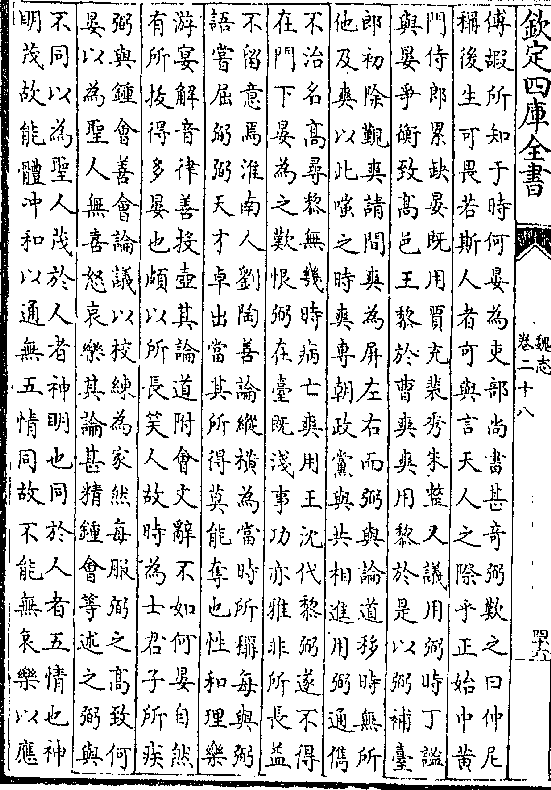 欽定四庫全書
魏志
卷二十八
傅嘏所知于時何晏為吏部尚書甚奇弼歎之曰仲尼
稱後生可畏若斯人者可與言天人之際乎正始中黃
門侍郎累缺晏既用賈充裴秀朱整又議用弼時丁謐
與晏爭衡致高邑王黎於曹爽爽用黎於是以弼補臺
郎初除覲爽請間爽為屏左右而弼與論道移時無所
他及爽以此嗤之時爽專朝政黨與共相進用弼通儁
不治名高尋黎無幾時病亡爽用王沈代黎弼遂不得
在門下晏為之歎恨弼在臺既淺事功亦雅非所長益
不留意焉淮南人劉陶善論縱橫為當時所稱每與弼
語嘗屈弼弼天才卓出當其所得莫能奪也性和理樂
游宴解音律善投壺其論道附會文辭不如何晏自然
有所拔得多晏也頗以所長笑人故時為士君子所疾
弼與鍾會善會論議以校練為家然每服弼之高致何
晏以為聖人無喜怒哀樂其論甚精鍾會等述之弼與
不同以為聖人茂於人者神明也同於人者五情也神
明茂故能體冲和以通無五情同故不能無哀樂以應